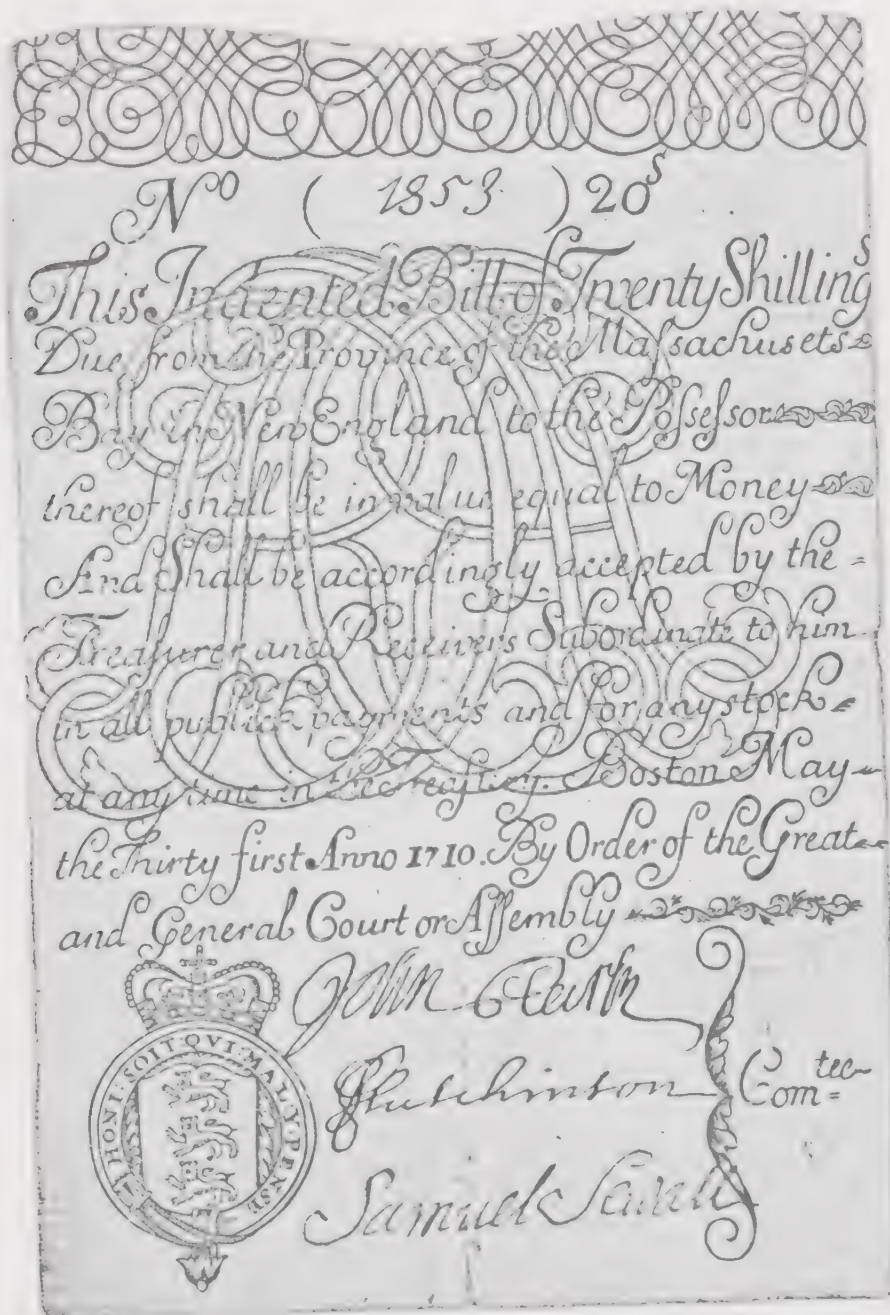 No ( 1853 ) 20s
This Indented Bill of Twenty Shillings
Due from the Province of the Massachusets
Bay in New England to the Possessor
thereof shall be in value equal to Money
And Shall be accordingly accepted by the
Treasurer and Receivers Subordinate to him
in all publick payments and for any stock
at any time in the Treasury. Boston May
the Thirty first Anno 1710. By Order of the Great
and General Court or Assembly
John
Hutchinson
Samuel Sewall
Comtee
HONI·SOIT·QVI·MAL·Y·PENSE